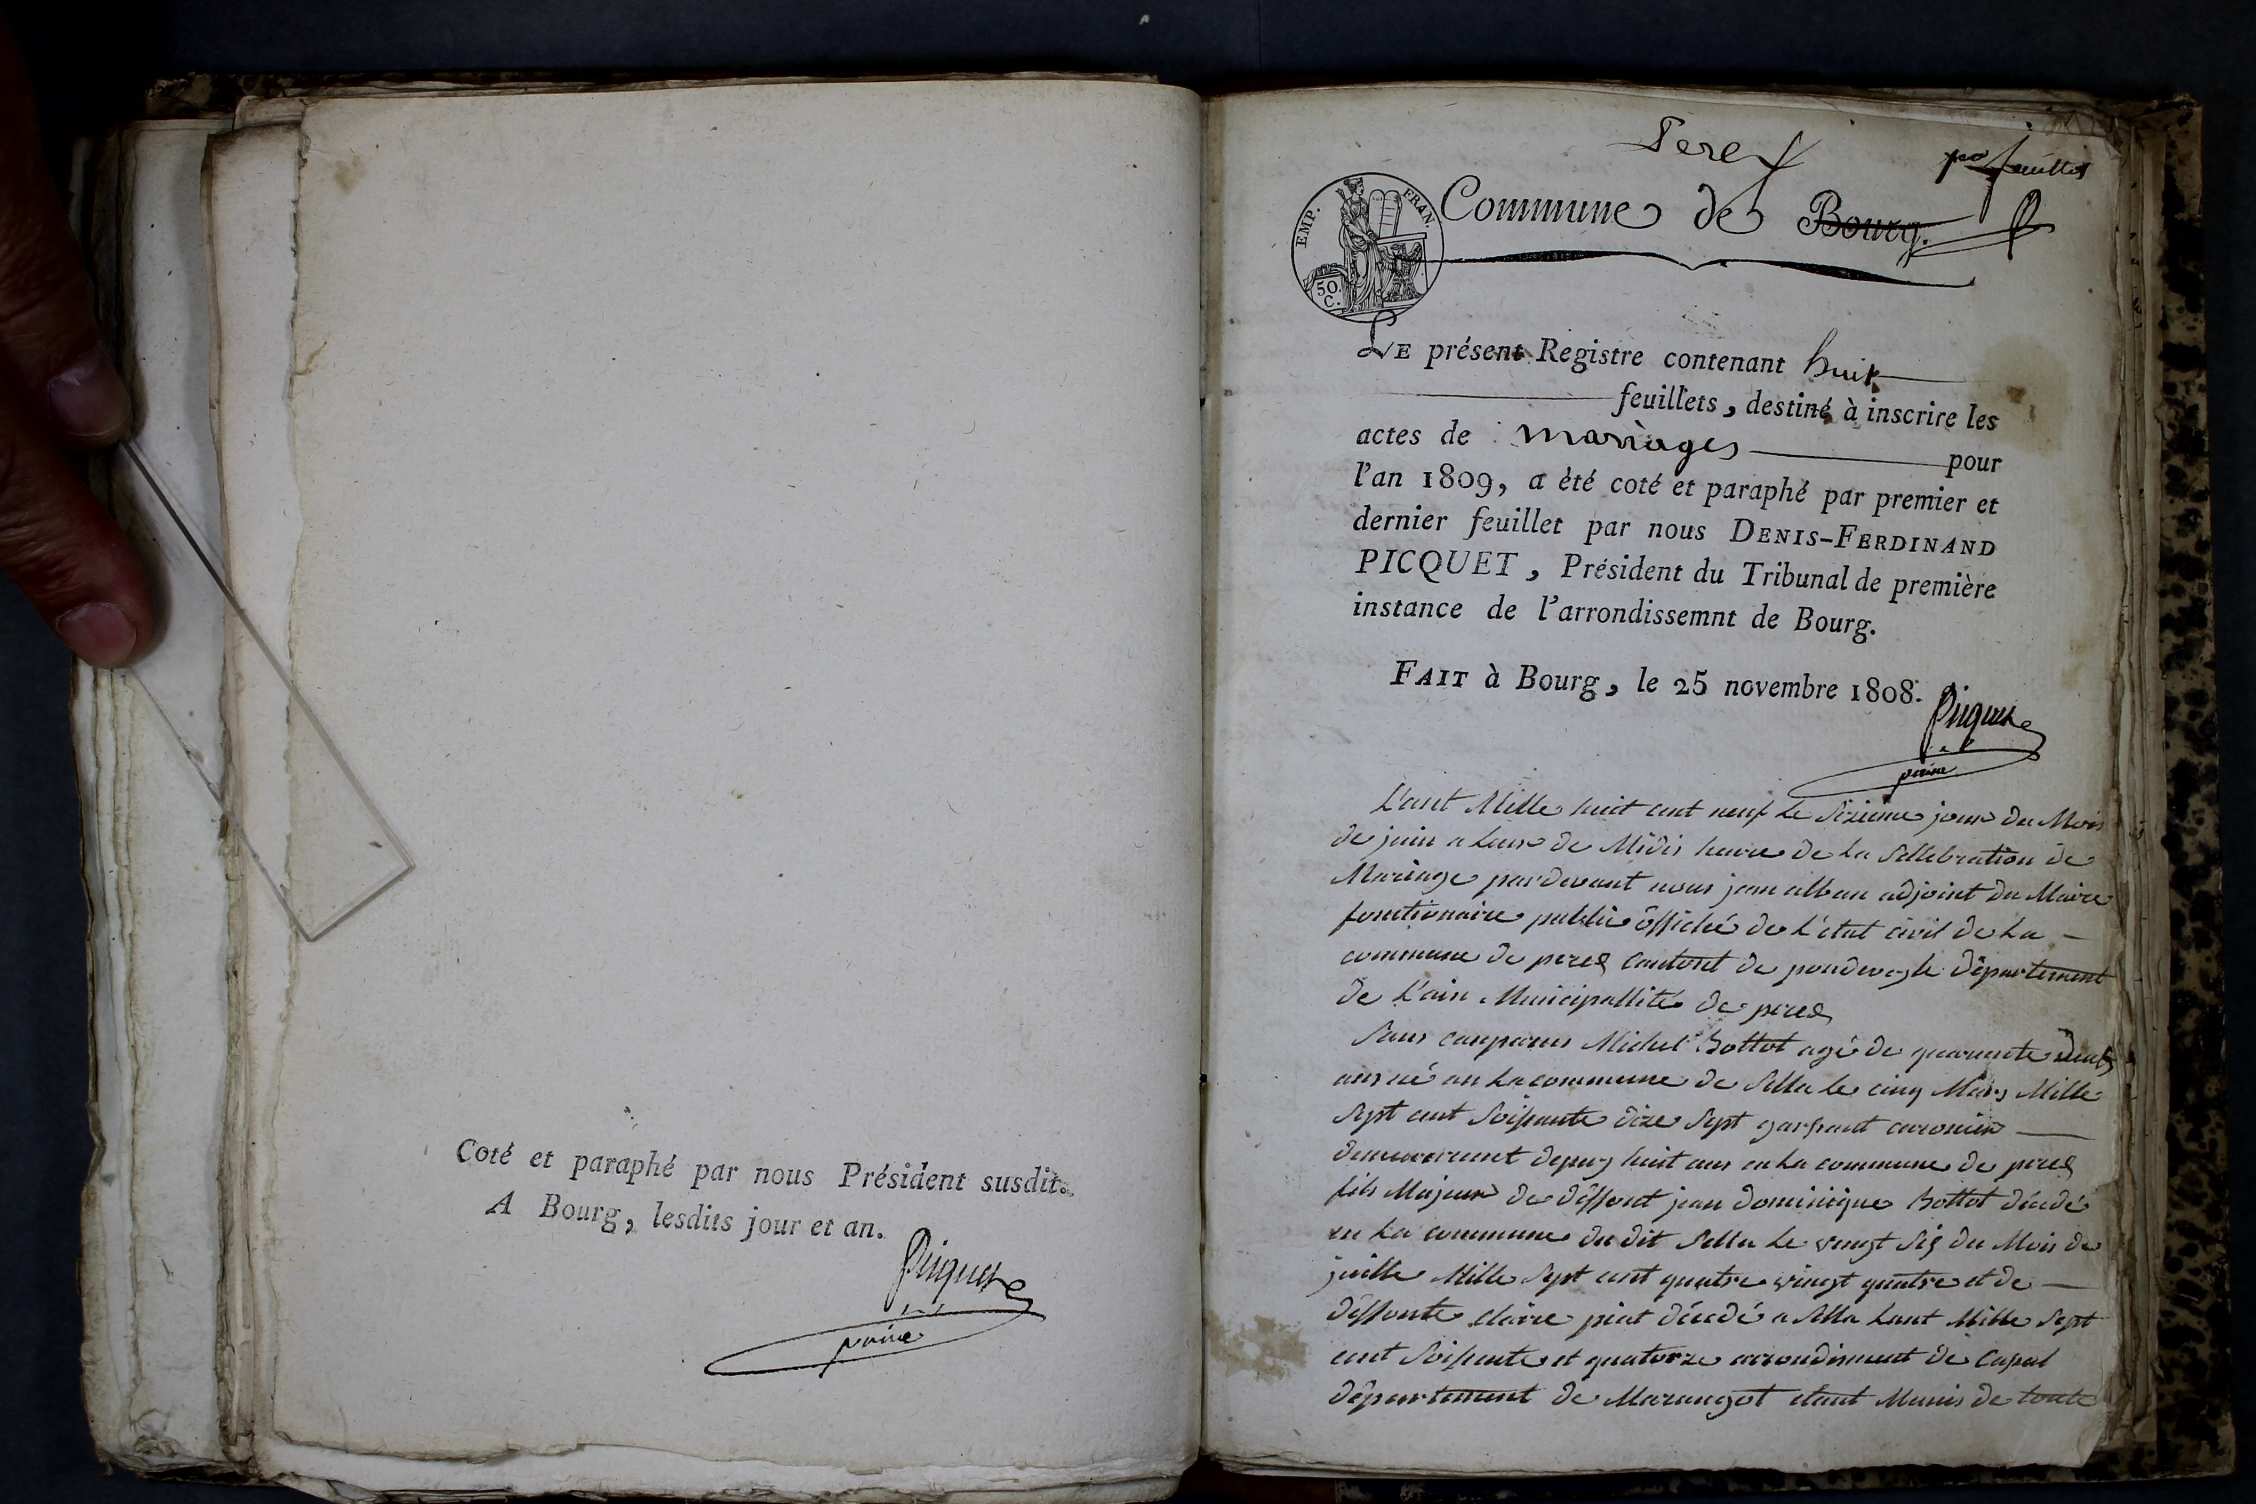 Coté et paraphé par nous Président susdit.
A Bourg, lesdits jour et an.
Picquet
Perex
pr feuillet
EMP. FRAN.
50.
C.
Commune de Bourg.
LE présent Registre contenant huit
feuillets, destiné à inscrire les
actes de mariages pour
l'an 1809, a été coté et paraphé par premier et
dernier feuillet par nous DENIS-FERDINAND
PICQUET, Président du Tribunal de première
instance de l'arrondissemnt de Bourg.
FAIT à Bourg, le 25 novembre 1808.
Picquet
L'ant Mille huit cent neuf Le sixieme jour du Mois
de juin a Leure de Midis heure de La sellebration de
Mariage pardevant nous jean alban adjoint du Maire
fonctionaire public officié de L'état civil de La
commune de perex Cantont de pondevesle département
de L'ain Municipallité de perex
Sans comparus Michel Bottot agé de quarante deux
ans né an La commune de Sella le cinq Mars Mille
Sept cent Soixante dize Sept garsont
demeurement depuy huit ans en La commune de perex
fils Majeur de deffont jean dominique Bottot décédé
en La commune du dit Sella Le vingt Six du Mois de
juille Mille Sept cent quatre vingt quatre et de
deffonte Claire piat décédé a Sella Lant Mille Sept
cent Soixente et quatorze arrondisment de Casal
département de Marangot étant Munis de toute